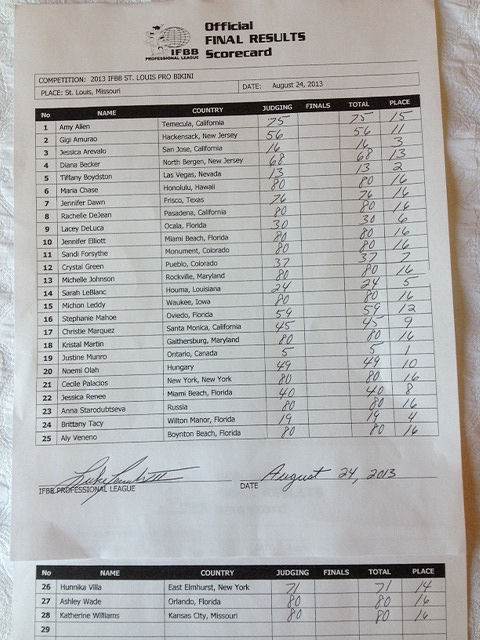 IFBB
PROFESSIONAL LEAGUE
Official
FINAL RESULTS
Scorecard
COMPETITION: 2013 IFBB ST. LOUIS PRO BIKINI
PLACE: St. Louis, Missouri DATE: August 24, 2013
No NAME COUNTRY JUDGING FINALS TOTAL PLACE
1 Amy Allen Temecula, California 75 75 15
2 Gigi Amurao Hackensack, New Jersey 56 56 11
3 Jessica Arevalo San Jose, California 16 16 3
4 Diana Becker North Bergen, New Jersey 68 68 13
5 Tiffany Boydston Las Vegas, Nevada 13 13 2
6 Maria Chase Honolulu, Hawaii 80 80 16
7 Jennifer Dawn Frisco, Texas 76 76 16
8 Rachelle DeJean Pasadena, California 80 80 16
9 Lacey DeLuca Ocala, Florida 30 30 6
10 Jennifer Elliott Miami Beach, Florida 80 80 16
11 Sandi Forsythe Monument, Colorado 80 80 16
12 Crystal Green Pueblo, Colorado 37 37 7
13 Michelle Johnson Rockville, Maryland 80 80 16
14 Sarah LeBlanc Houma, Louisiana 24 24 5
15 Michon Leddy Waukee, Iowa 80 80 16
16 Stephanie Mahoe Oviedo, Florida 59 59 12
17 Christie Marquez Santa Monica, California 45 45 9
18 Kristal Martin Gaithersburg, Maryland 80 80 16
19 Justine Munro Ontario, Canada 5 5 1
20 Noemi Olah Hungary 49 49 10
21 Cecile Palacios New York, New York 80 80 16
22 Jessica Renee Miami Beach, Florida 40 40 8
23 Anna Starodubtseva Russia 80 80 16
24 Brittany Tacy Wilton Manor, Florida 19 19 4
25 Aly Veneno Boynton Beach, Florida 80 80 16
August 24, 2013
IFBB PROFESSIONAL LEAGUE DATE
No NAME COUNTRY JUDGING FINALS TOTAL PLACE
26 Hunnika Villa East Elmhurst, New York 71 71 14
27 Ashley Wade Orlando, Florida 80 80 16
28 Katherine Williams Kansas City, Missouri 80 80 16
29